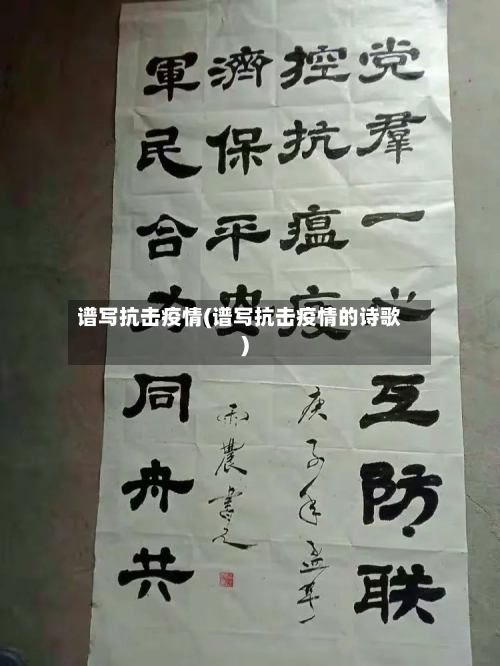 党羣一心互防联
控抗瘟疫
庚子年
軍民合力同舟共
濟保平安
雨農書之
谱写抗击疫情(谱写抗击疫情的诗歌
)